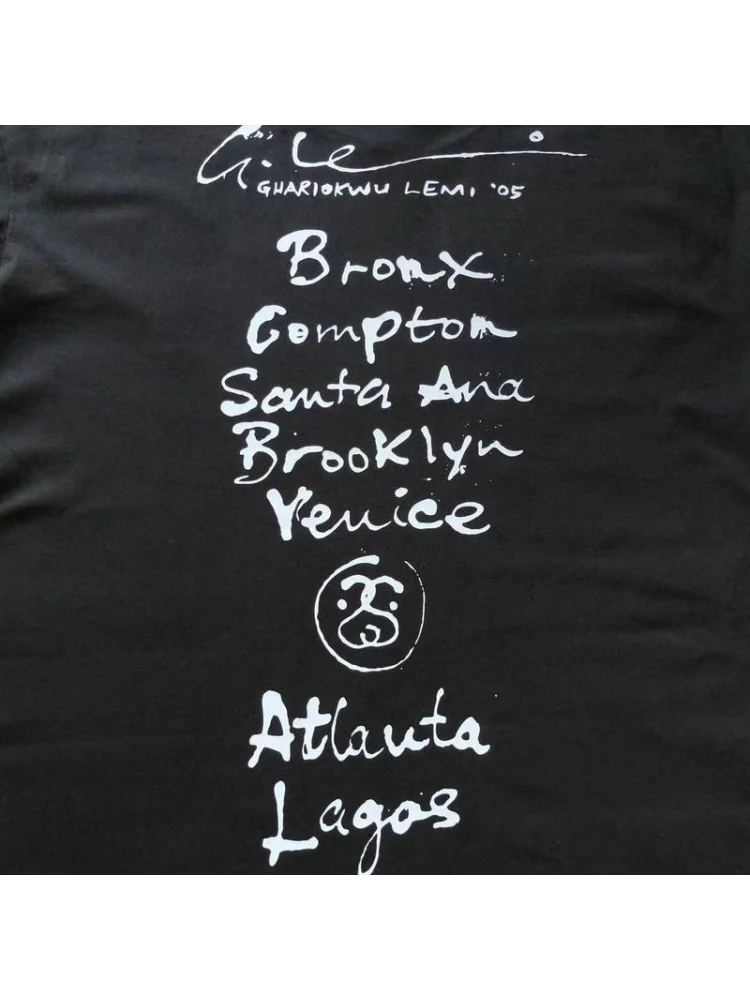 G. Lemi
GHARIOKWU LEMI '05
Bronx
Compton
Santa Ana
Brooklyn
Venice
Atlanta
Lagos